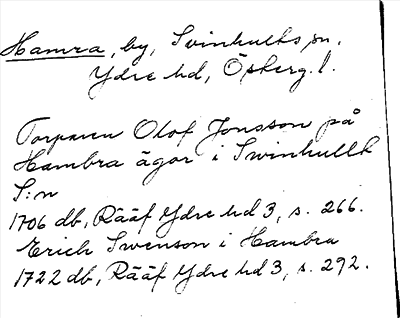 Hamra, by, Svinhults sn.
Ydre hd, Österg. l.
Torparen Olof Jonsson på
Hambra ägor i Swinhullt
S:n
1706 db, Rääf Ydre hd 3, s. 266.
Erich Swenson i Hambra
1722 db, Rääf Ydre hd 3, s. 292.